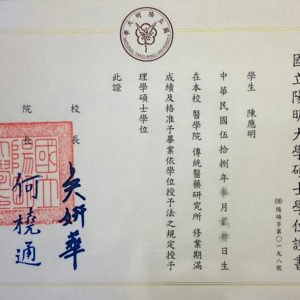 國立陽明大學碩士學位證書
學生 陳應明
中華民國伍拾捌年 月 日生
在本校 醫學院 傳統醫藥研究所 修業期滿
成績及格准予畢業依學位授予法之規定授予
理學碩士學位
此證
校長 吳妍華
院長 何橈通